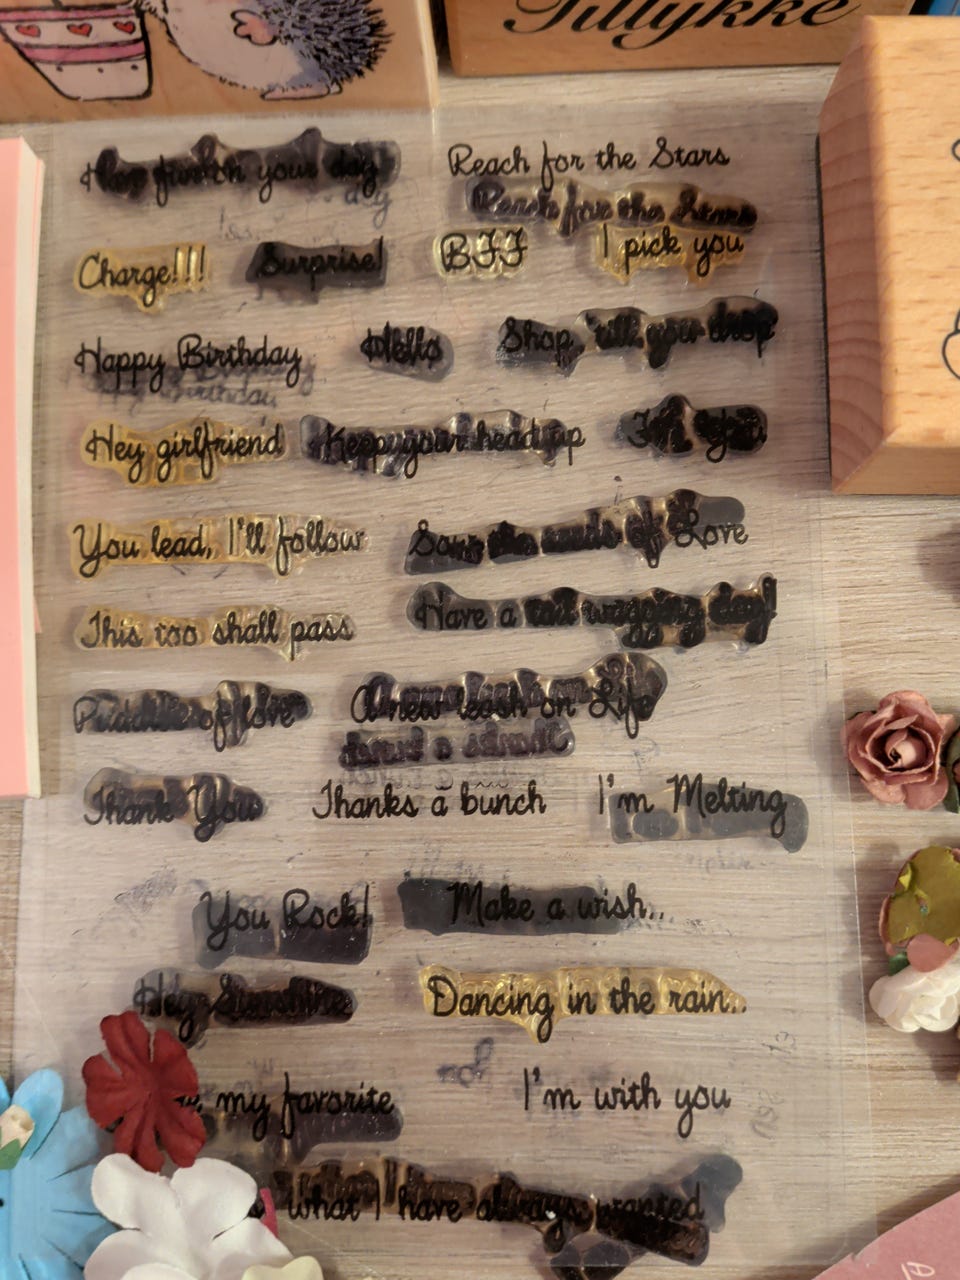 Tillykke
Have fun on your day
Reach for the Stars
Reach for the Stars
Charge!!! Surprise! BFF I pick you
Happy Birthday Hello Shop, till you drop
Hey girlfriend Keep your head up For you
You lead, I'll follow Sows the seeds of Love
This too shall pass Have a tail wagging day!
Puddle of love A new leash on Life
Thanks a bunch
Thank You Thanks a bunch I'm Melting
You Rock! Make a wish..
Hey Sunshine Dancing in the rain..
my favorite I'm with you
what I have always wanted